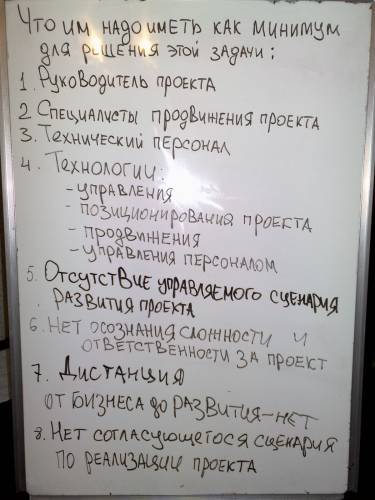 Что им надо иметь как минимум
для решения этой задачи:
1. Руководитель проекта
2 Специалисты продвижения проекта
3. Технический персонал
4. Технологии:
- управления
- позиционирования проекта
- продвижения
- управления персоналом
5. Отсутствие управляемого сценария
. развития проекта
6. Нет осознания сложности и
ответственности за проект
7. Дистанция
от бизнеса до развития - нет
8. Нет согласующегося сценария
по реализации проекта